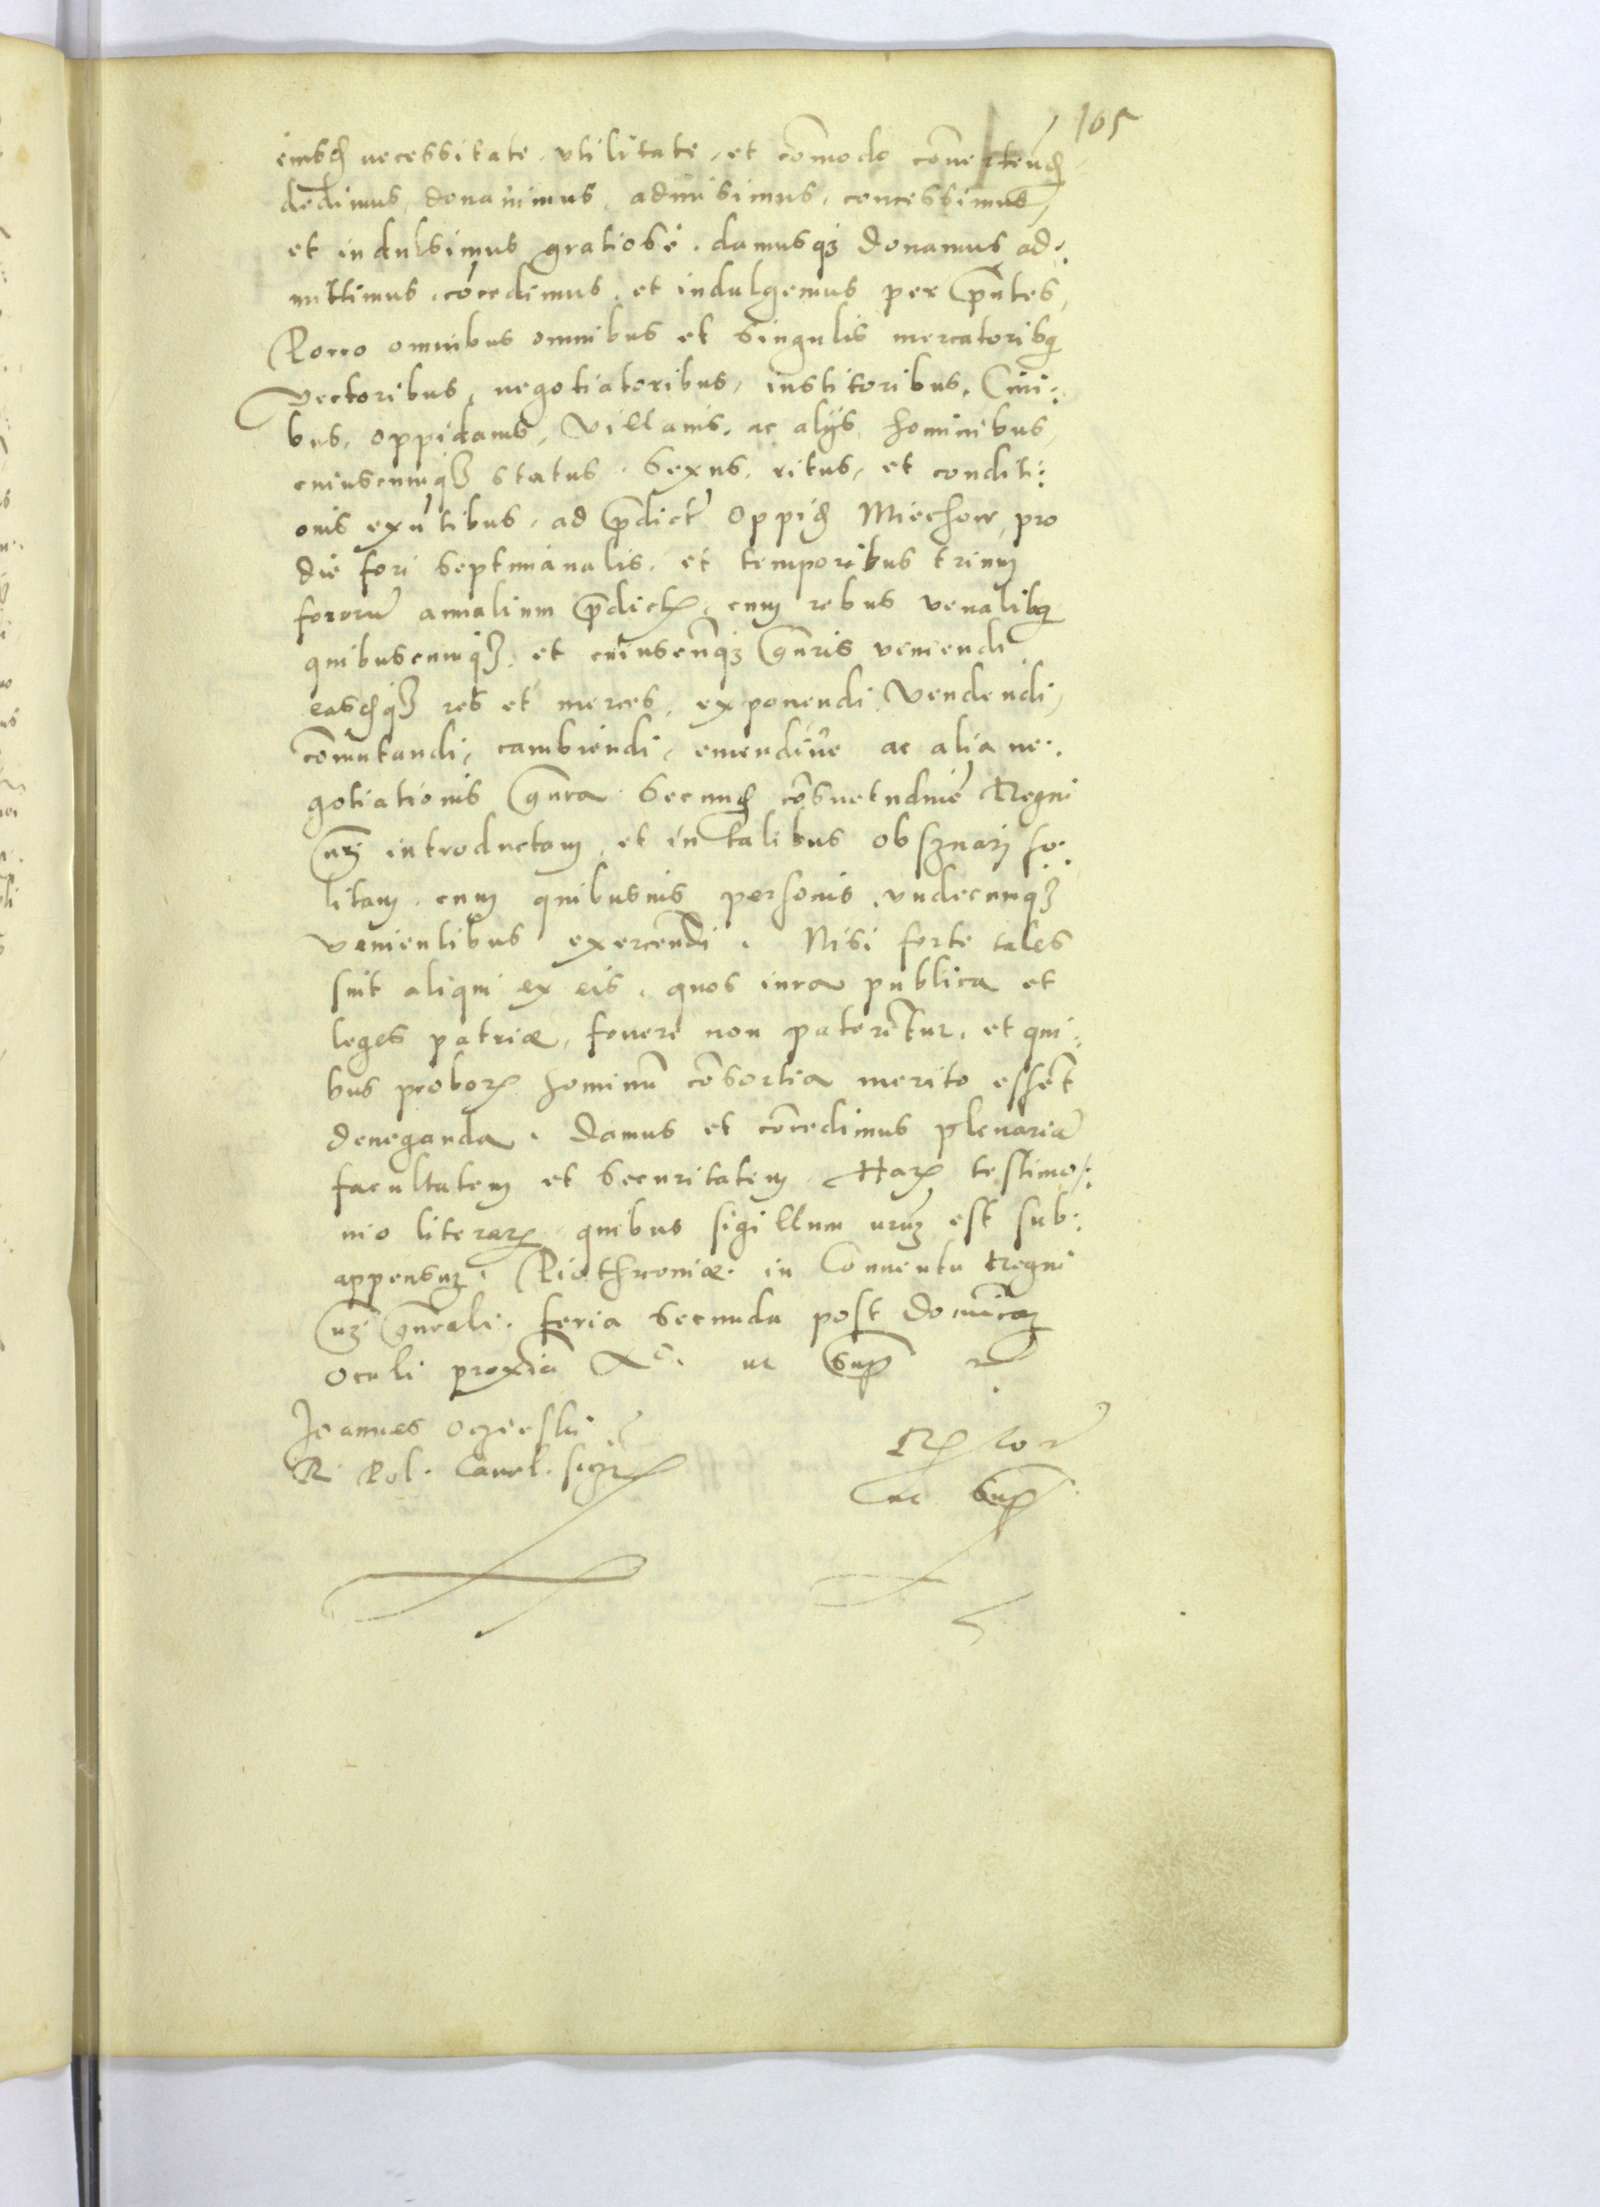 105
eiusd necessitate, vtilitate, et comodo conuertend
dedimus, donauimus, admisimus, concessimus,
et indulsimus gratiose, damusq3 donamus ad:
mittimus, cōcedimus, et indulgemus per p̄ntes,
Porro omnibus omnibus et singulis mercatoribq
vectoribus, negotiatoribus, institoribus, Ciui:
bus, oppidanis, villanis, ac alijs hominibus,
cuiuscunq3 status, sexus, ritus, et conditi:
onis exn̄tibus, ad p̄dict Oppid Miechow, pro
die fori septimanalis, et temporibus trium
fororū annalium p̄dictꝝ, cum rebus venalibq
quibuscunq3, et cuiuscūq3 gn̄ris veniendi
easdq3 res et merces, exponendi, vendendi,
cōmutandi, cambiendi, emendiue ac alia ne:
gotiationis gn̄ra secund cōsuetudinē Regni
nr̄i introductam, et in talibus obseruari so:
litam, cum quibusuis personis, vndecunq3
venientibus exercendi. Nisi forte tales
sint aliqui ex eis, quos iura publica et
leges patriæ, fouere non paterētur, et qui:
bus proborꝝ hominū cōsortia merito essēt
deneganda. Damus et cōcedimus plenariā
facultatem et securitatem. Harꝝ testimo:
nio literarꝝ, quibus sigillum nr̄um est sub:
appensum. Piothrcouiæ in Conuentu Regni
nr̄i gn̄rali. feria secunda post domīcam
Oculi proxīa Ao. ut supra
Joannes Oczieski
R. Pol. Cancel.
ut supra